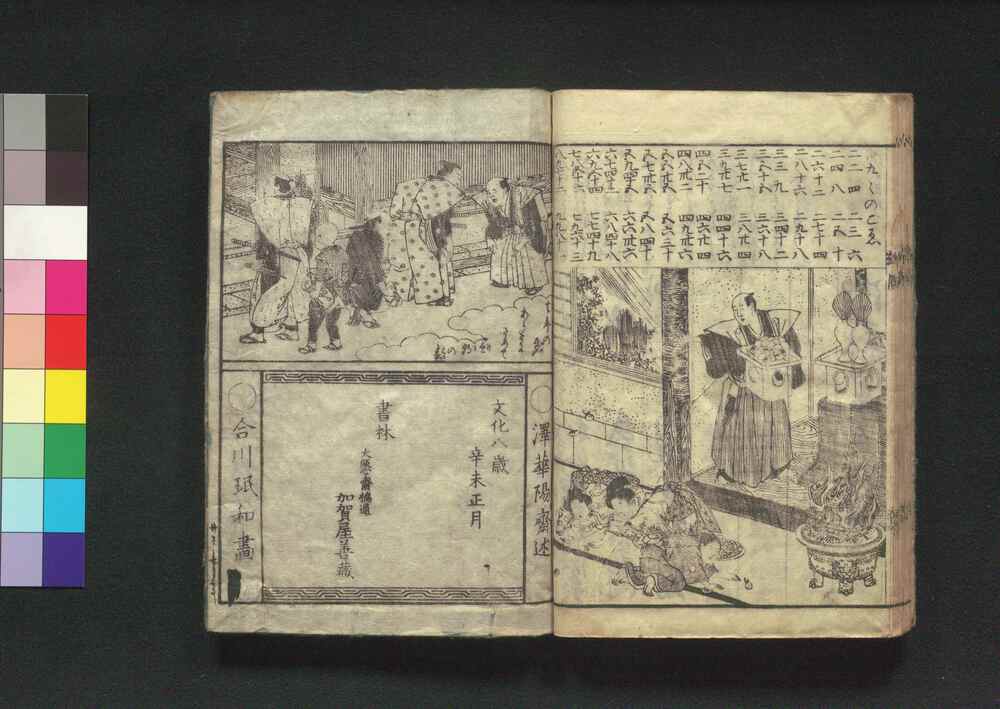 九々のこゑ
二二四　二三六
二四八　二五十
二六十二　二七十四
二八十六　二九十八
三三九　三四十二
三五十五　三六十八
三七廿一　三八廿四
三九廿七　四四十六
四五二十　四六廿四
四八卅二　四九卅六
五五廿五　五六三十
五七卅五　五八四十
五九四十五　六六卅六
六七四十二　六八四十八
六九五十四　七七四十九
七八五十六　七九六十三
八九七十二　九九八十一
澤華陽齋述
文化八歳
辛未正月
書林
大阪心齋橋通
加賀屋善藏
合川珉和畫